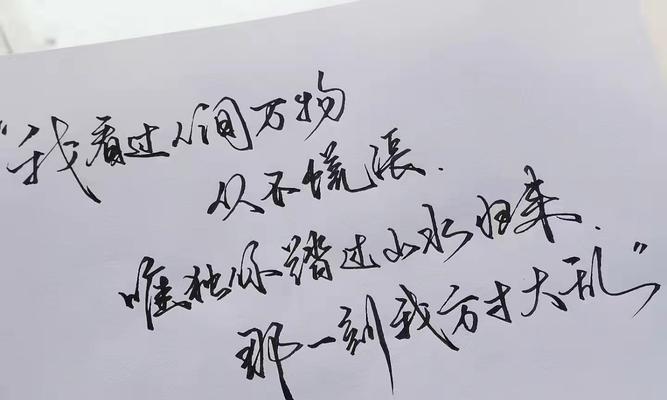 "我看过人间万物
从不慌张.
唯独你踏过山水归来.
那一刻我方才大乱"